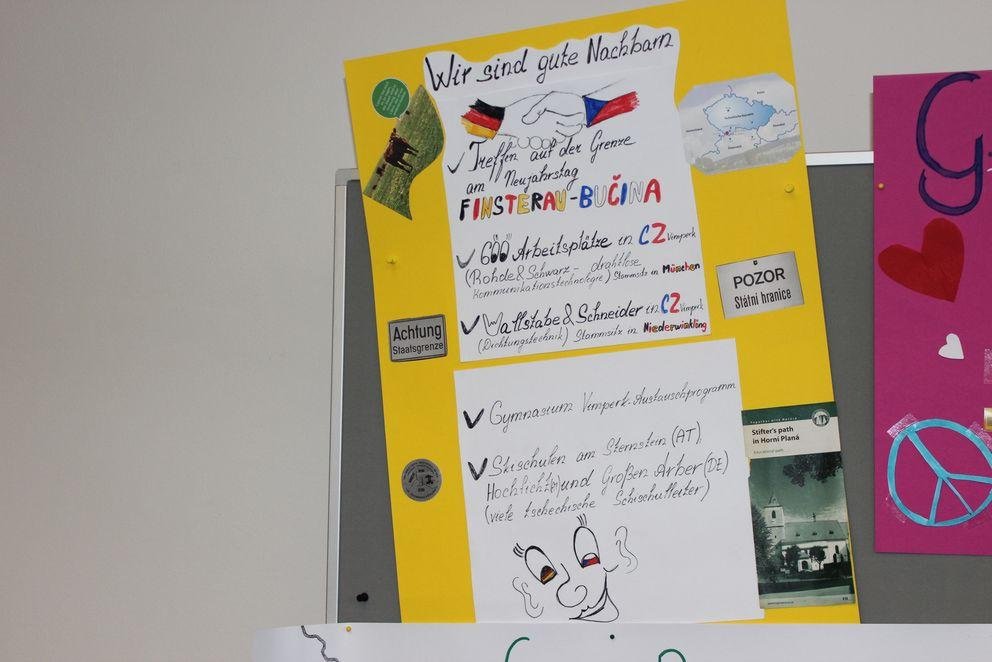 Wir sind gute Nachbarn
Treffen auf der Grenze
am Neujahrstag
FINSTERAU-BUČINA
600 Arbeitsplätze in CZ Vimperk
(Rohde & Schwarz - drahtlose
Kommunikationstechnologie) Stammsitz in München
Wallstabe & Schneider in CZ Vimperk
(Dichtungstechnik) Stammsitz in Niederwinkling
Achtung
Staatsgrenze
POZOR
Státní hranice
Gymnasium Vimperk-Austauschprogramm
Skischulen am Sternstein (AT),
Hochficht und Großen Arber (DE)
(viele tschechische Schischulleiter)
Stifter's path
in Horní Planá
Educational path
G